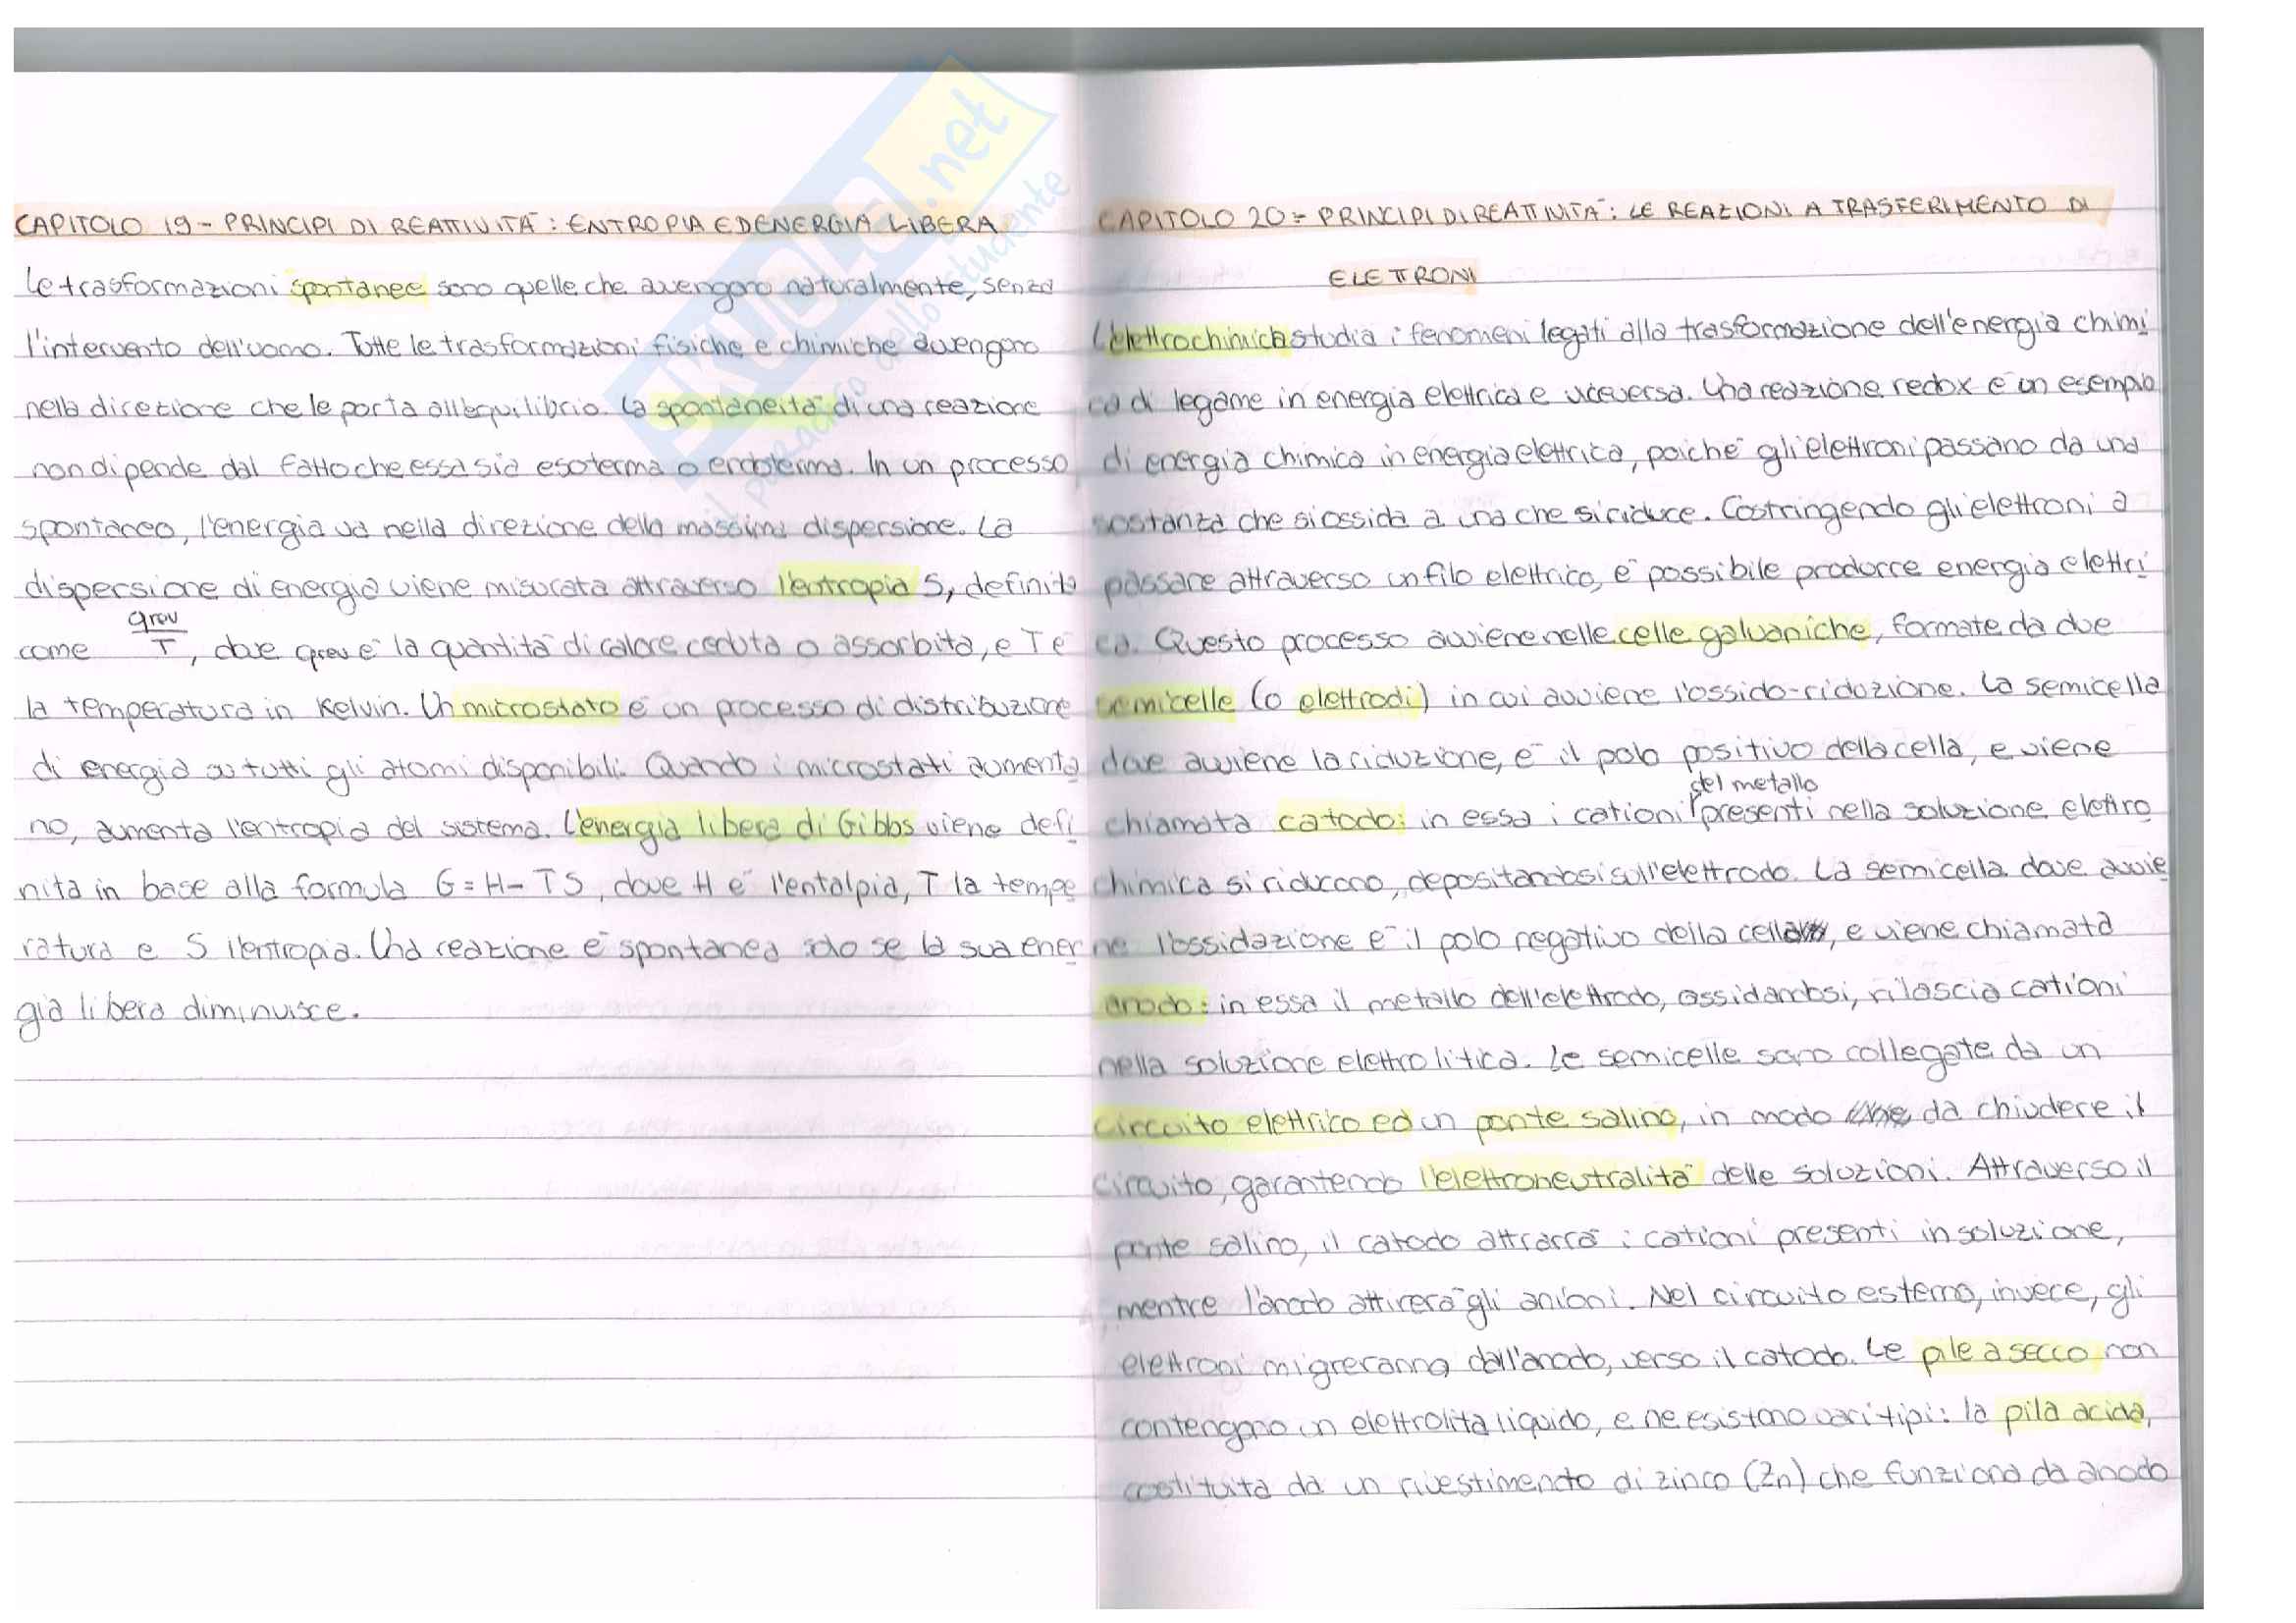 CAPITOLO 19 - PRINCIPI DI REATTIVITÀ: ENTROPIA ED ENERGIA LIBERA
Le trasformazioni spontanee sono quelle che avvengono naturalmente, senza
l'intervento dell'uomo. Tutte le trasformazioni fisiche e chimiche avvengono
nella direzione che le porta all'equilibrio. La spontaneità di una reazione
non dipende dal fatto che essa sia esoterma o endoterma. In un processo
spontaneo, l'energia va nella direzione della massima dispersione. La
dispersione di energia viene misurata attraverso l'entropia S, definita
come qrev/T, dove qrev è la quantità di calore ceduta o assorbita, e T è
la temperatura in Kelvin. Un microstato è un processo di distribuzione
di energia su tutti gli atomi disponibili. Quando i microstati aumenta
no, aumenta l'entropia del sistema. L'energia libera di Gibbs viene defi
nita in base alla formula G=H-TS, dove H è l'entalpia, T la tempe
ratura e S l'entropia. Una reazione è spontanea solo se la sua ener
gia libera diminuisce.
CAPITOLO 20 - PRINCIPI DI REATTIVITÀ: LE REAZIONI A TRASFERIMENTO DI
ELETTRONI
L'elettrochimica studia i fenomeni legati alla trasformazione dell'energia chimi
ca di legame in energia elettrica e viceversa. Una reazione redox è un esempio
di energia chimica in energia elettrica, poiché gli elettroni passano da una
sostanza che si ossida a una che si riduce. Costringendo gli elettroni a
passare attraverso un filo elettrico, è possibile produrre energia elettri
ca. Questo processo avviene nelle celle galvaniche, formate da due
semicelle (o elettrodi) in cui avviene l'ossido-riduzione. La semicella
dove avviene la riduzione, è il polo positivo della cella, e viene
chiamata catodo: in essa i cationi del metallo presenti nella soluzione elettro
chimica si riducono, depositandosi sull'elettrodo. La semicella dove avvie
ne l'ossidazione è il polo negativo della cella, e viene chiamata
anodo: in essa il metallo dell'elettrodo, ossidandosi, rilascia cationi
nella soluzione elettrolitica. Le semicelle sono collegate da un
circuito elettrico ed un ponte salino, in modo da chiudere il
circuito, garantendo l'elettroneutralità delle soluzioni. Attraverso il
ponte salino, il catodo attrarrà i cationi presenti in soluzione,
mentre l'anodo attirerà gli anioni. Nel circuito esterno, invece, gli
elettroni migreranno dall'anodo, verso il catodo. Le pile a secco non
contengono un elettrolita liquido, e ne esistono vari tipi: la pila acida,
costituita da un rivestimento di zinco (Zn) che funziona da anodo
SKUOLA.net
il paradiso dello studente